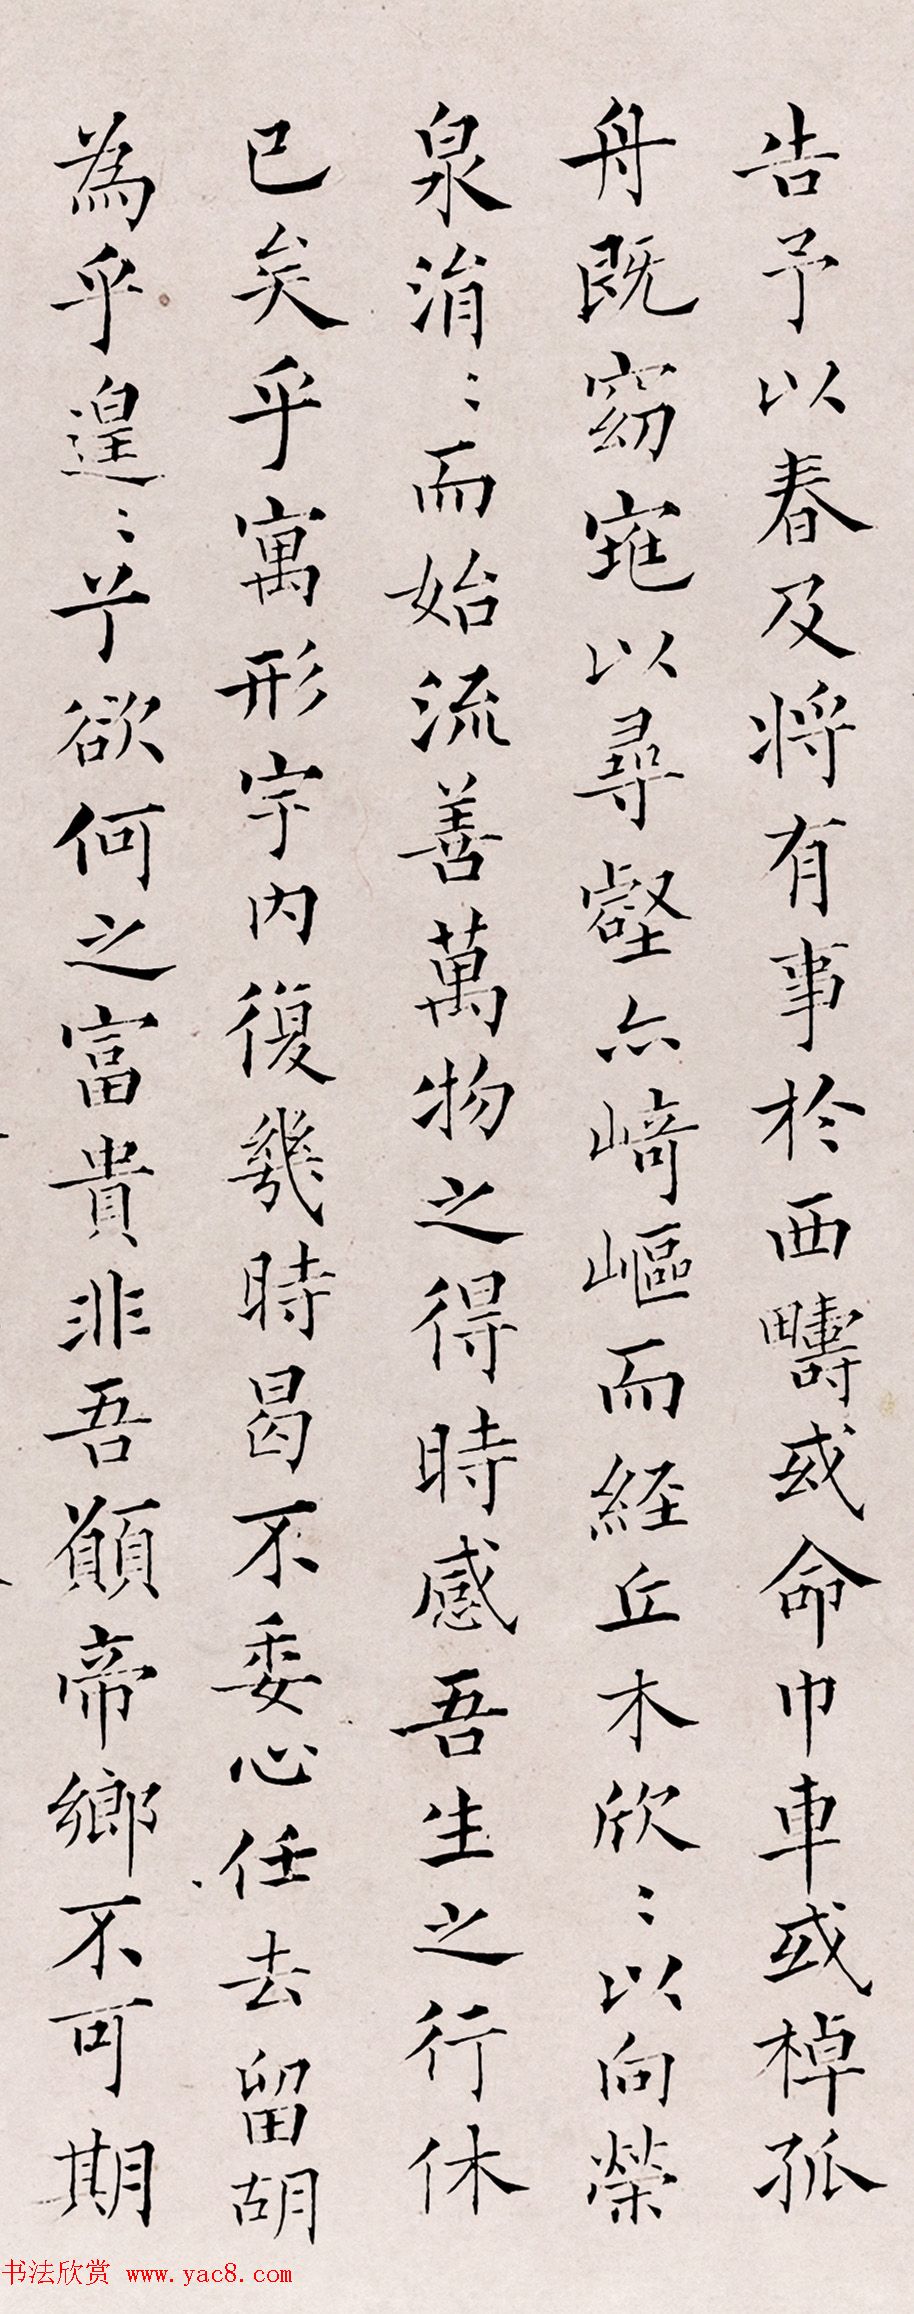 告予以春及將有事於西疇或命巾車或棹孤
舟既窈窕以尋壑亦崎嶇而経丘木欣〻以向榮
泉涓〻而始流善萬物之得時感吾生之行休
已矣乎寓形宇內復幾時曷不委心任去留胡
為乎遑〻兮欲何之富貴非吾願帝鄉不可期
书法欣赏 www.yac8.com